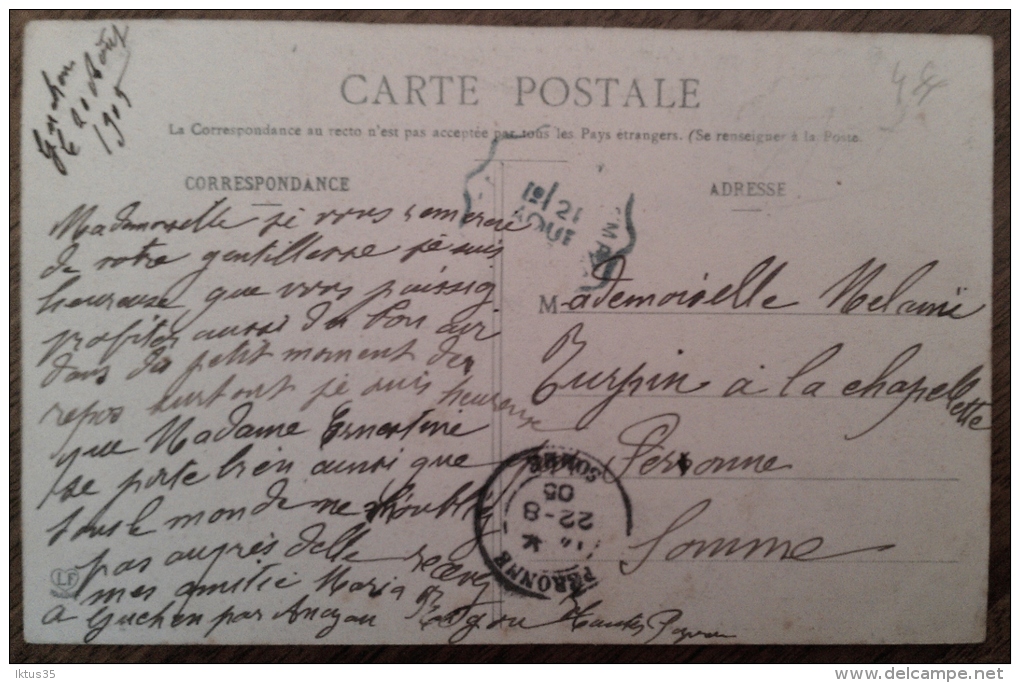 Guchen
le 20 Août
1905
CARTE POSTALE
La Correspondance au recto n'est pas acceptée par tous les Pays étrangers. (Se renseigner à la Poste
CORRESPONDANCE
Mademoiselle je vous remercie
de votre gentillesse je suis
heureuse que vous puissiez
profiter aussi du bon air
dans du petit moment de
repos surtout je suis heureuse
que Madame Ernestine
se porte bien ainsi que
tous le monde ne m'oubliez
pas auprès delle recevez
mes amitié Maria
à Guchen par Ancizan Hautes Pyrenées
LF
ADRESSE
Mademoiselle Melanie
Turpin à la chapellette
Peronne
Somme
21
AOUT
PERONNE
22-8
05
SOMME
Iktus35
www.delcampe.net